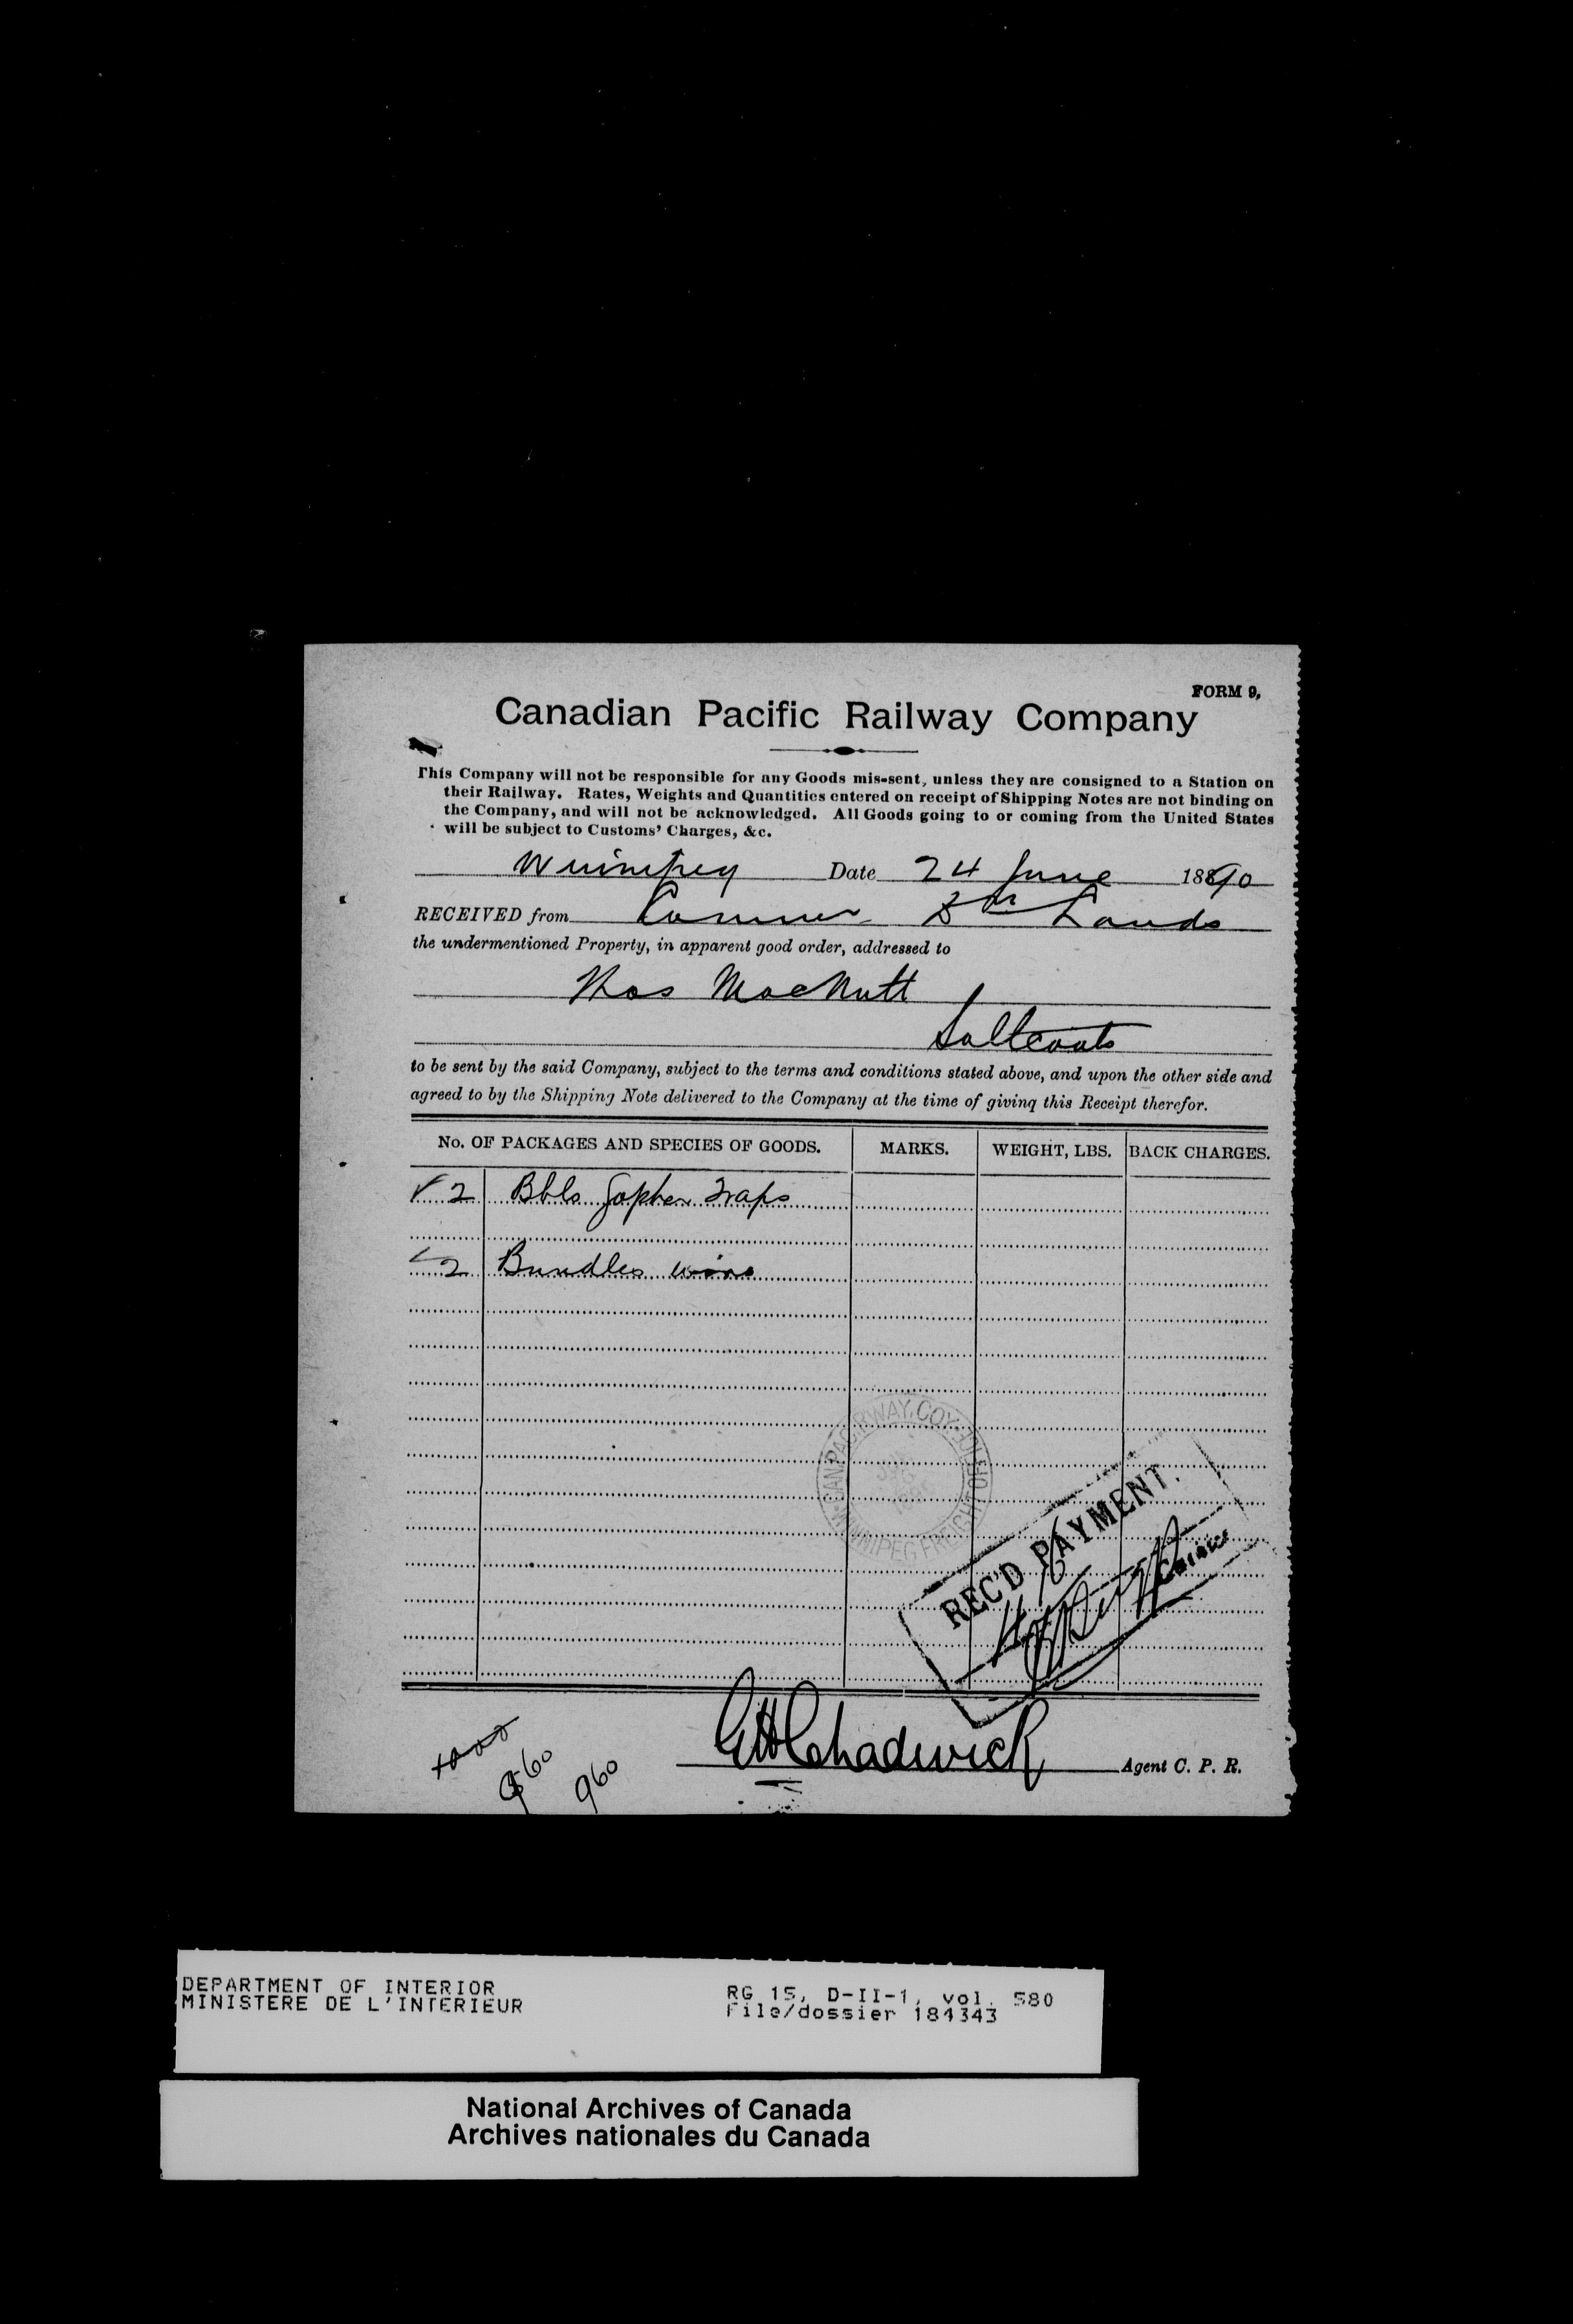 FORM 9,
Canadian Pacific Railway Company
This Company will not be responsible for any Goods mis-sent, unless they are consigned to a Station on
their Railway. Rates, Weights and Quantities entered on receipt of Shipping Notes are not binding on
the Company, and will not be acknowledged. All Goods going to or coming from the United States
will be subject to Customs' Charges, &c.
Winnipeg Date 24 June 1890
RECEIVED from Commr Dn Lands
the undermentioned Property, in apparent good order, addressed to
Thos MacNutt
Saltcoats
to be sent by the said Company, subject to the terms and conditions stated above, and upon the other side and
agreed to by the Shipping Note delivered to the Company at the time of giving this Receipt therefor.
No. OF PACKAGES AND SPECIES OF GOODS. MARKS. WEIGHT, LBS. BACK CHARGES.
2 Bbls Gopher Traps
2 Bundles wire
CAN. PAC. RWAY. COY.
WINNIPEG FREIGHT OFFICE
REC'D PAYMENT.
GHChadwick Agent C. P. R.
960
960
DEPARTMENT OF INTERIOR
MINISTERE DE L'INTERIEUR
RG 15, D-II-1, vol. 580
File/dossier 184343
National Archives of Canada
Archives nationales du Canada